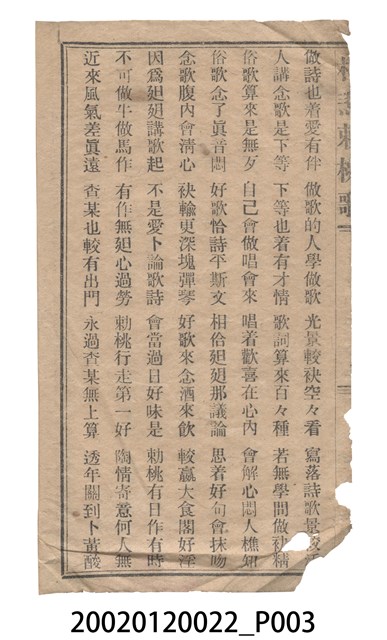 做詩也着愛有伴 做歌的人學做歌 光景較袂空々看 寫落詩歌景
人講念歌是下等 下等也着有才情 歌詞算來百々種 若無學問做袂精
俗歌算來是無歹 自己會做唱會來 唱着歡喜在心內 會解心悶人樵知
俗歌念了眞音悶 好歌恰詩平斯文 相佮廻廻那議論 思着好句會抹吻
念歌腹內會淸心 袂輸更深塊彈琴 好歌來念酒來飮 較贏大食閣好淫
因爲廻廻講歌起 不是愛卜論歌詩 會當過日好味是 勅桃有日作有時
不可做牛做馬作 有作無廻心過勞 勅桃行走第一好 陶情寄意何人無
近來風氣差眞遠 查某也較有出門 永過查某無上算 透年關到卜黃酸
20020120022_P003